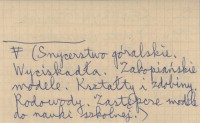 ∇ (Snycerstwo góralskie.
Wyciskadła. Zakopiańskie
modele. Kształty i zdobiny.
Rodowody. Zastępcze modele
do nauki szkolnej.)